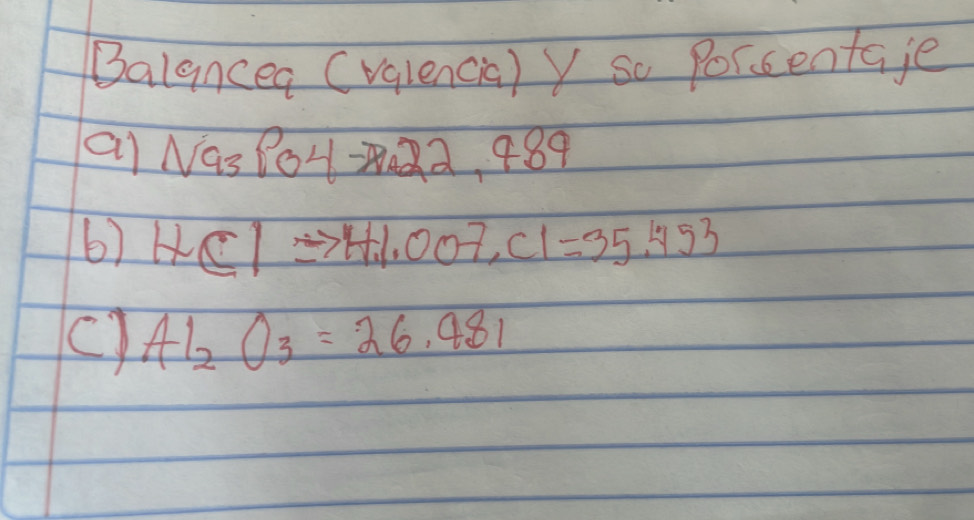 Balancea (valencia) y su Porcentaje
a) Na3 Po4 → 22,989
b) HCl => H1.007, Cl=35.453
C) Al2 O3 = 26.981